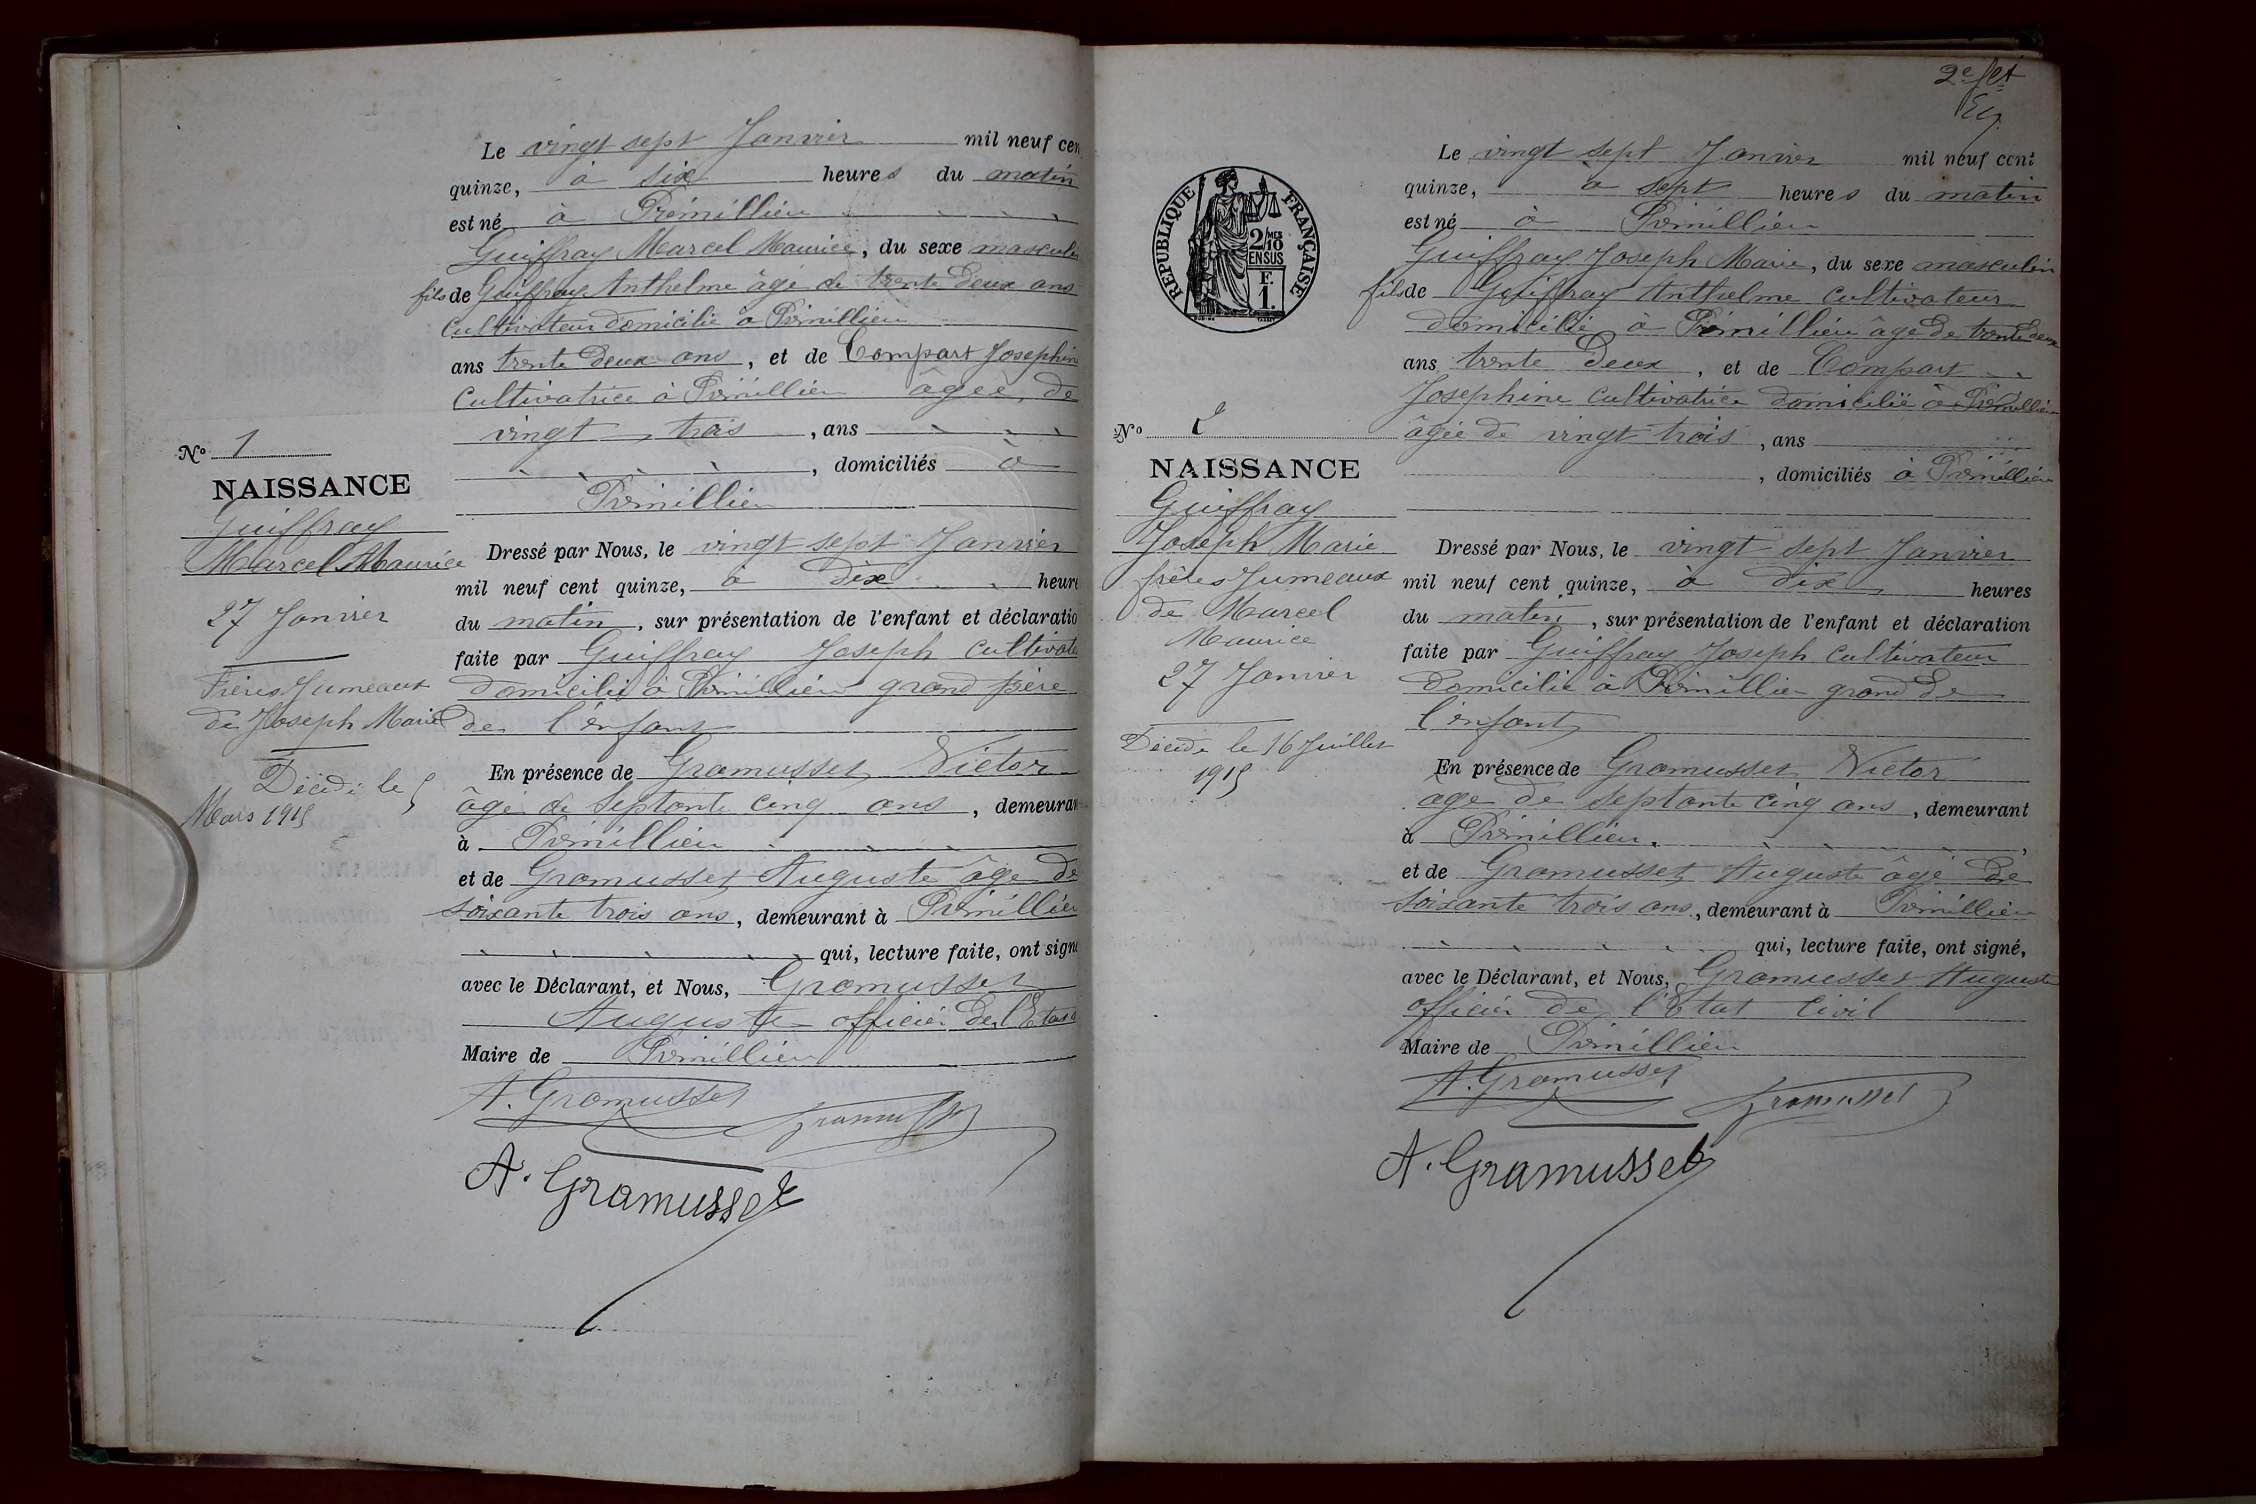 Le vingt sept Janvier mil neuf cen
quinze, à six heures du matin
est né à Prémillieu
Guiffray Marcel Maurice, du sexe masculin
fils de Guiffray Anthelme âgé de trente deux ans
cultivateur domicilié à Prémillieu
ans trente deux ans, et de Compart Josephine
cultivatrice à Prémillieu âgée de
vingt trois, ans
, domiciliés à
Prémillieu
No 1
NAISSANCE
Guiffray
Marcel Maurice
27 Janvier
Frères Jumeaux
de Joseph Marie
Décédé le 5
Mars 1915
Dressé par Nous, le vingt sept Janvier
mil neuf cent quinze, à dix heure
du matin, sur présentation de l'enfant et déclaratio
faite par Guiffray Joseph cultivate
domicilié à Prémillieu grand père
de l'enfant
En présence de Gramusset Victor
âgé de septante cinq ans, demeuran
à Prémillieu
et de Gramusset Auguste âgé de
soixante trois ans, demeurant à Prémillieu
qui, lecture faite, ont signé
avec le Déclarant, et Nous, Gramusset
Auguste officier de l'Etat c
Maire de Prémillieu
A. Gramusset
Gramusset
A. Gramusset
2e f et
RÉPUBLIQUE FRANÇAISE
2 MES
10
EN SUS
F.
1.
Le vingt sept Janvier mil neuf cent
quinze, à sept heures du matin
est né à Prémillieu
Guiffray Joseph Marie, du sexe masculin
fils de Guiffray Anthelme cultivateur
domicilié à Prémillieu âgé de trente deux
ans trente deux, et de Compart
Josephine cultivatrice domicilié à Prémillieu
âgée de vingt trois, ans
, domiciliés à Prémillieu
No 2
NAISSANCE
Guiffray
Joseph Marie
frères Jumeaux
de Marcel
Maurice
27 Janvier
Décédé le 16 Juillet
1915
Dressé par Nous, le vingt sept Janvier
mil neuf cent quinze, à dix heures
du matin, sur présentation de l'enfant et déclaration
faite par Guiffray Joseph cultivateur
domicilié à Prémillieu grand de
l'enfant
En présence de Gramusset Victor
âge de septante cinq ans, demeurant
à Prémillieu.
et de Gramusset Auguste âgé de
soixante trois ans, demeurant à Prémillieu
qui, lecture faite, ont signé,
avec le Déclarant, et Nous, Gramusset Auguste
officier de l'Etat Civil
Maire de Prémillieu
A. Gramusset
Gramusset
A. Gramusset